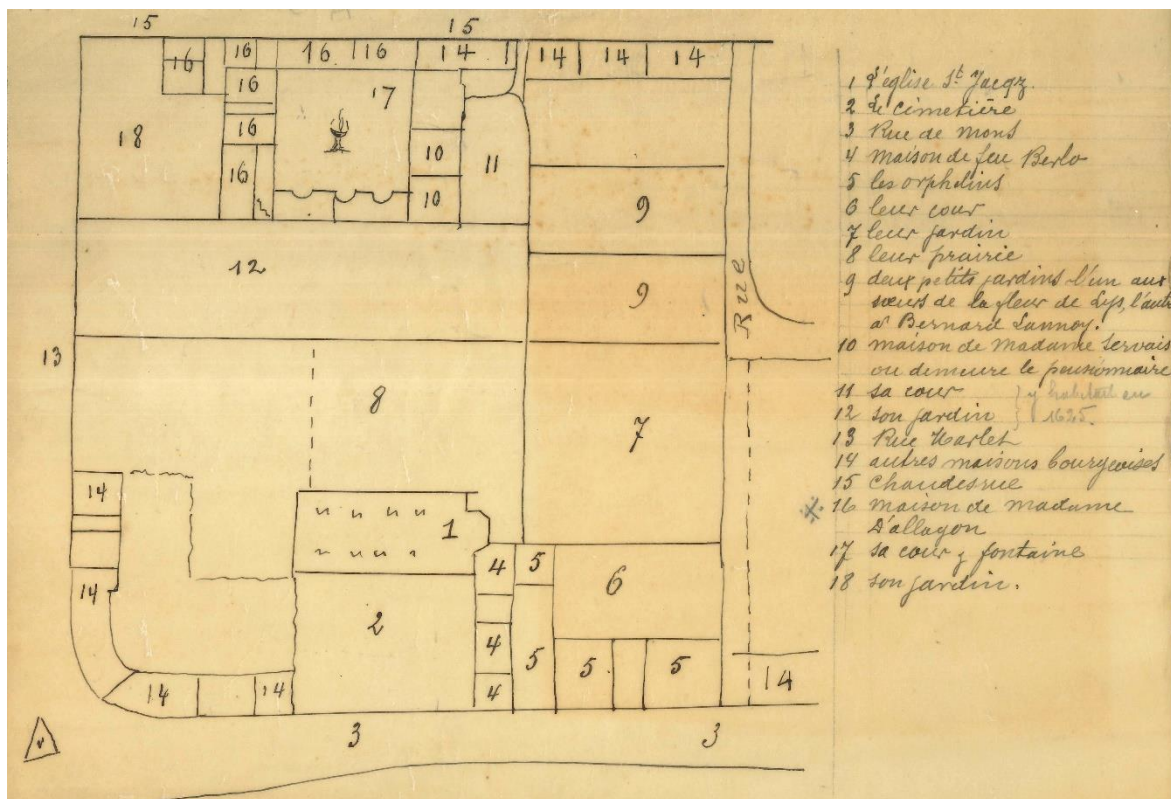 15 15
16 16 16 16 14 14 14 14
16 17
18 16 10 11
16 10 9
12 9
Rue
13
8 7
14
1
4 5 6
14 2
4 5 5 5
14 14 4 14
3 3
1 L'église St Jacqz.
2 Le Cimetière
3 Rue de Mons
4 maison de feu Berlo
5 les orphelins
6 leur cour
7 leur jardin
8 leur prairie
9 deux petits jardins l'un aux
sœurs de la fleur de Lys, l'autre
à Bernard Lannoy.
10 maison de Madame Servais
ou demeure le pensionnaire
11 sa cour } y habitait en
12 son jardin } 1625.
13 Rue Harlet
14 autres maisons bourgeoises
15 Chaudesrue
16 maison de madame
D'allagon
17 sa cour y fontaine
18 son jardin.